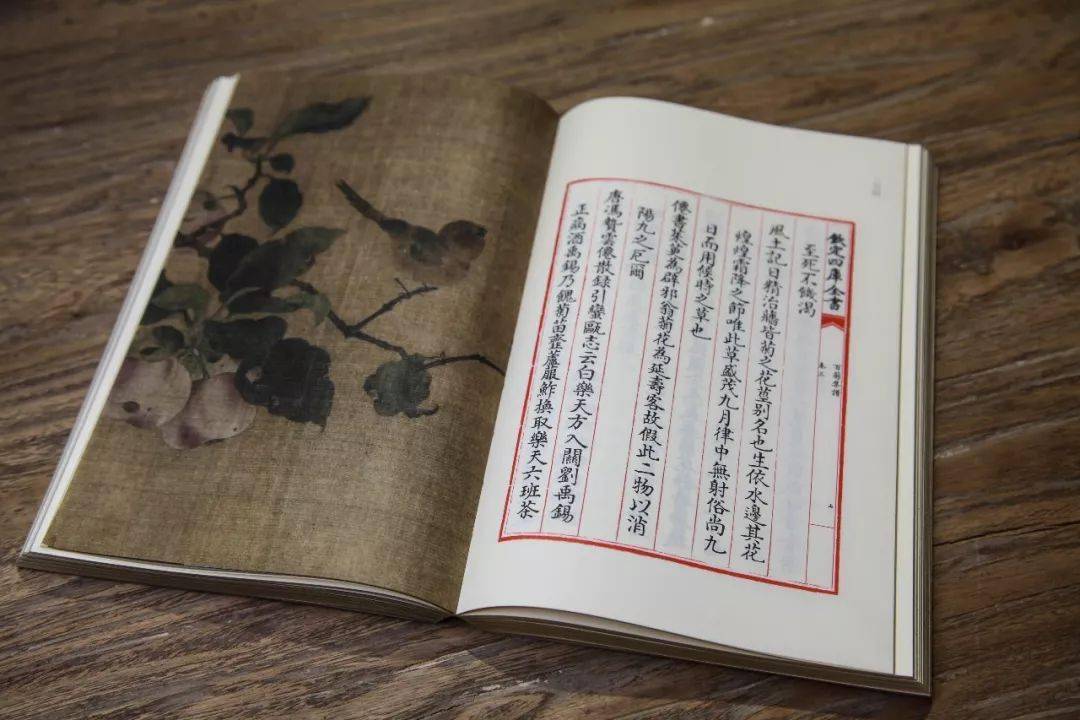 欽定四庫全書
百菊集譜
卷三
七
至死不饑渴
風土記日精治牆皆菊之花莖別名也生依水邊其花
煌煌霜降之節唯此草盛茂九月律中無射俗尚九
日而用候時之草也
僊書茱萸為辟邪翁菊花為延壽客故假此二物以消
陽九之厄爾
唐馮贄雲僊散錄引蠻甌志云白樂天方入關劉禹錫
正病酒禹錫乃餽菊苗虀蘆菔鮓換取樂天六班茶